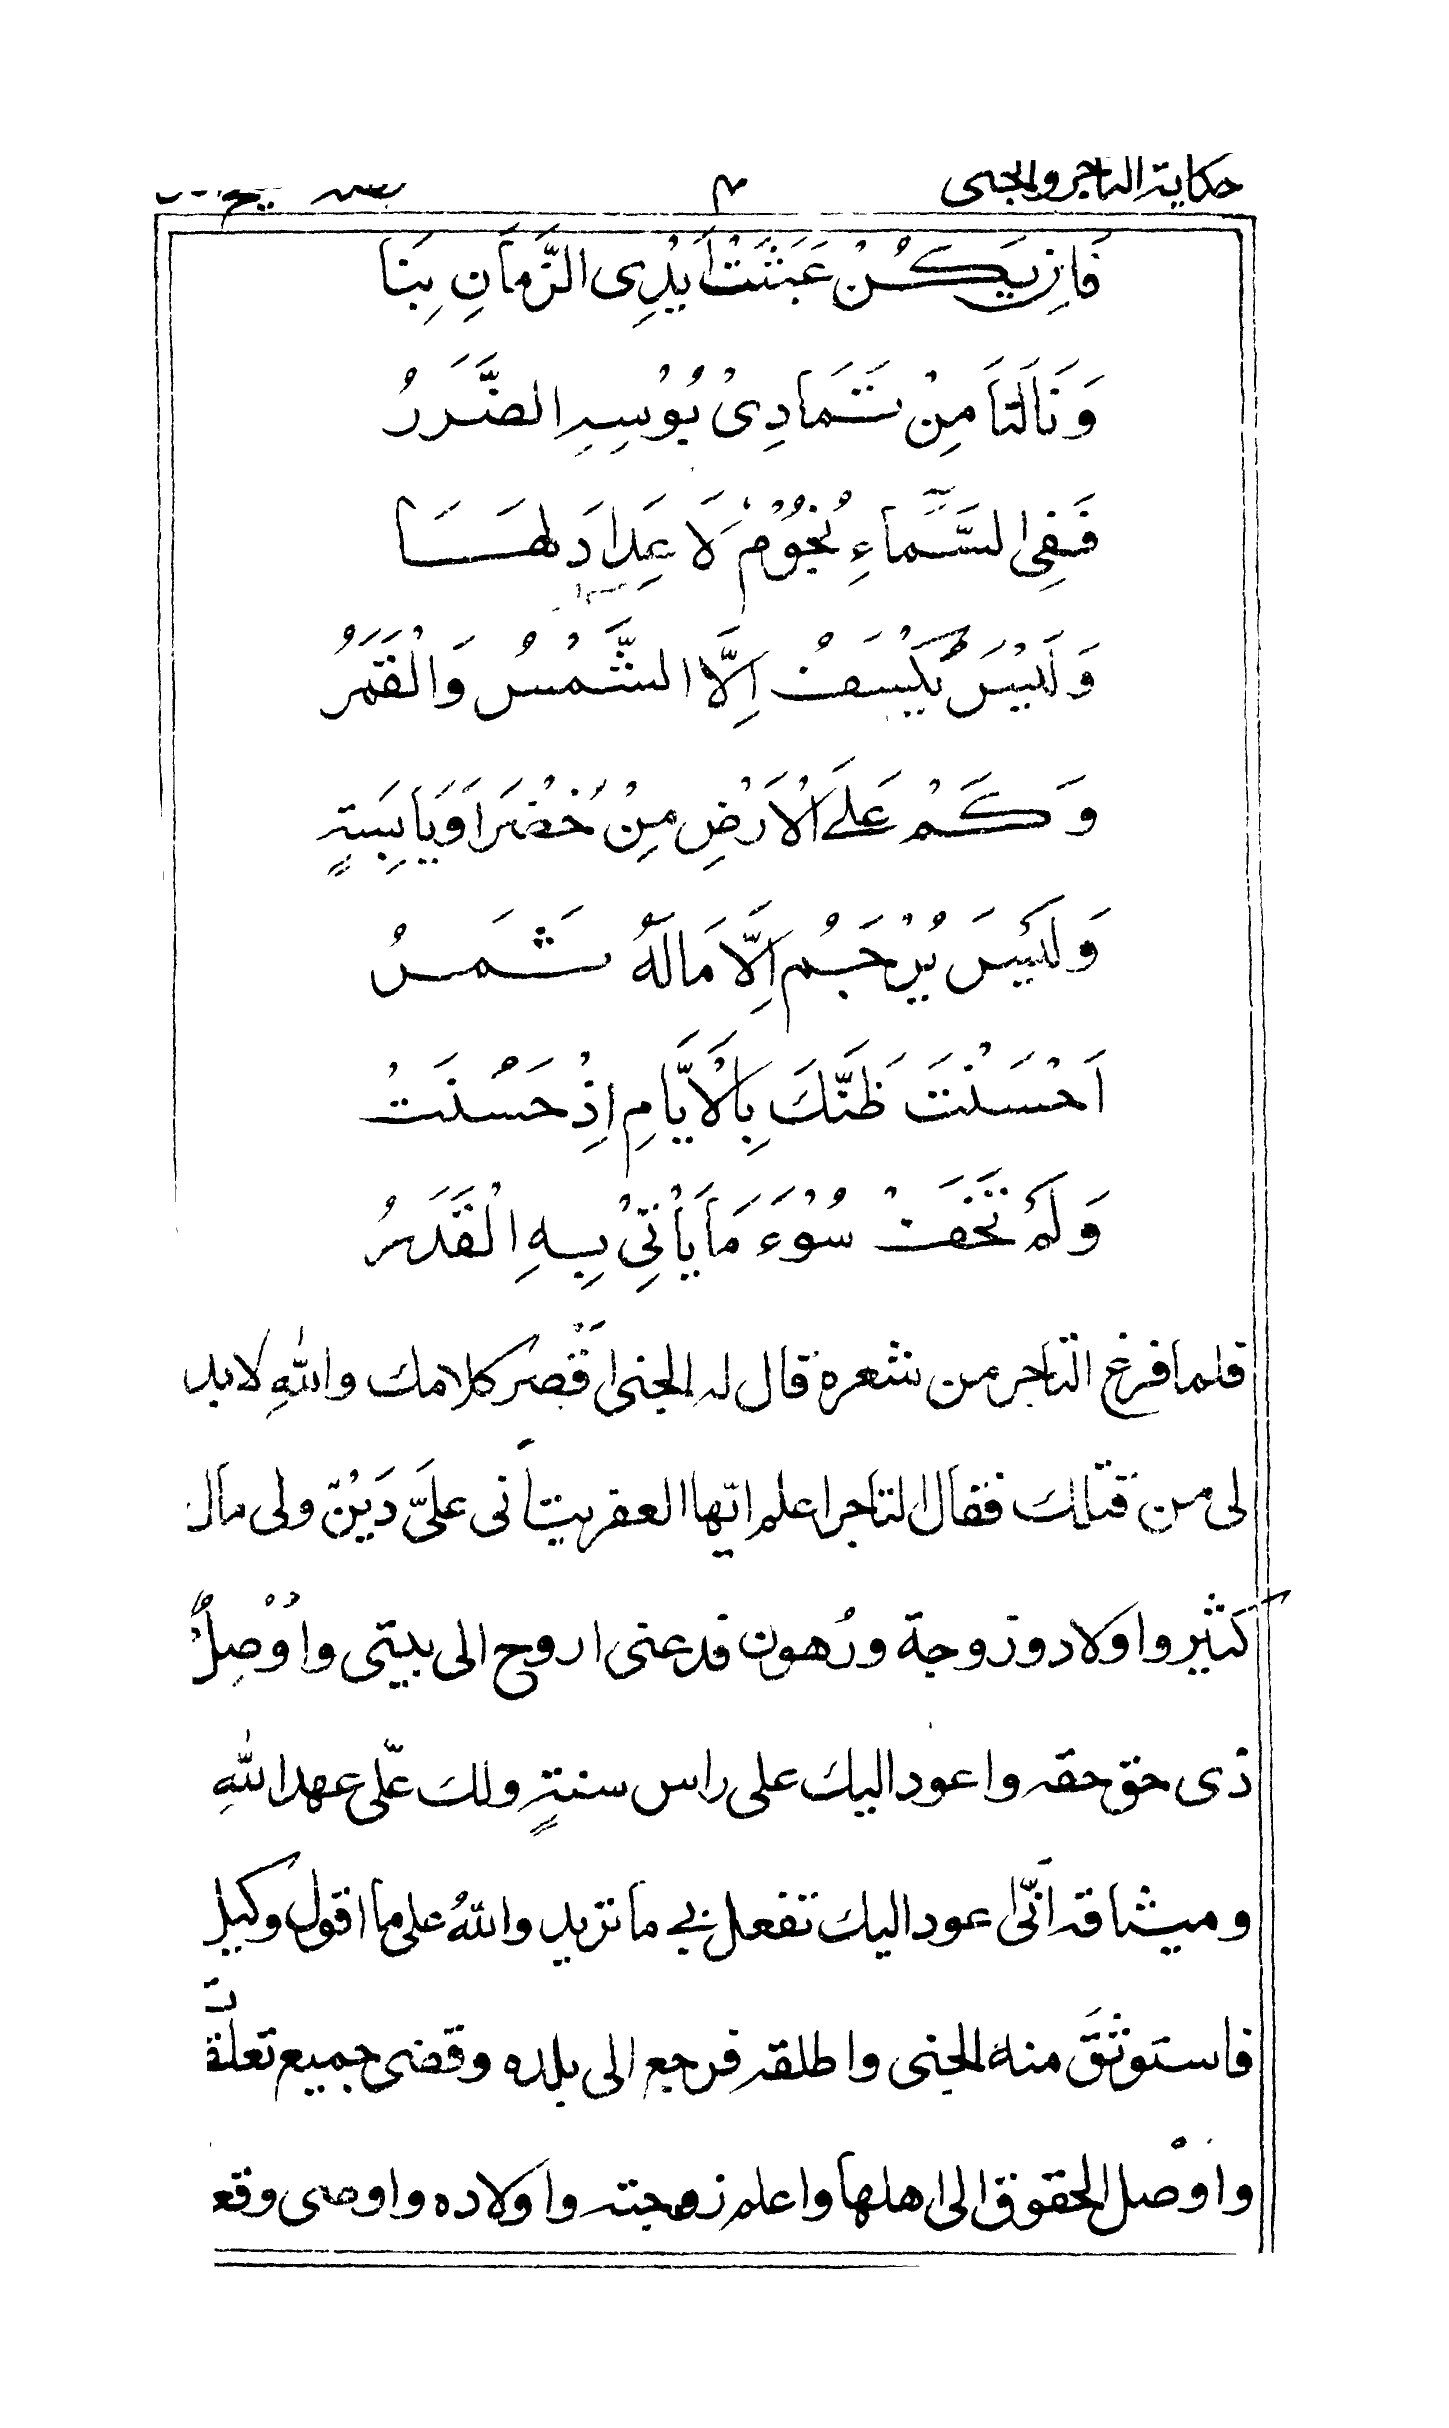 حكاية التاجر والجنى ٣
فَاِنْ يَكُنْ عَبَثَتْ اَيْدِى الزَّمَانِ بِنَا
وَنَالَنَا مِنْ تَمَادِىْ بُوْسِهِ الضَّرَرُ
فَفِى السَّمَاءِ نُجُوْمٌ لَا عِدَادَ لَهَا
وَلَيْسَ يُكْسَفُ اِلَّا الشَّمْسُ وَالْقَمَرُ
وَكَمْ عَلَى الْاَرْضِ مِنْ خُضْرٍ اَوْ يَابِسَةٍ
وَلَيْسَ يُرْجَمُ اِلَّا مَالَهُ ثَمَرُ
اَحْسَنْتَ ظَنَّكَ بِالْاَيَّامِ اِذْ حَسُنَتْ
وَلَمْ تَخَفْ سُوْءَ مَا يَأْتِىْ بِهِ الْقَدَرُ
فلما فرغ التاجر من شعره قال له الجنى اَقْصِر كلامك واللهِ لا بد
لى من قتلك فقال التاجر اعلم ايّها العفريت اَنى علىَّ دَيْنٌ ولى مال
كثير واولاد وزوجة ورُهون فدعنى اروح الى بيتى واُوْصِلُ
ذى حق حقه واعود اليك على راس سنةٍ ولك علّى عهد اللهِ
وميثاقه اَنّى اعود اليك تفعل بى ما تريد واللهُ على ما اقول وكيل
فاستوثَقَ منه الجنى واطلقه فرجع الى بلده وقضى جميع تعلّقاته
واوْصل الحقوق الى اهلها واعلم زوجته واولاده واوصى وقعد